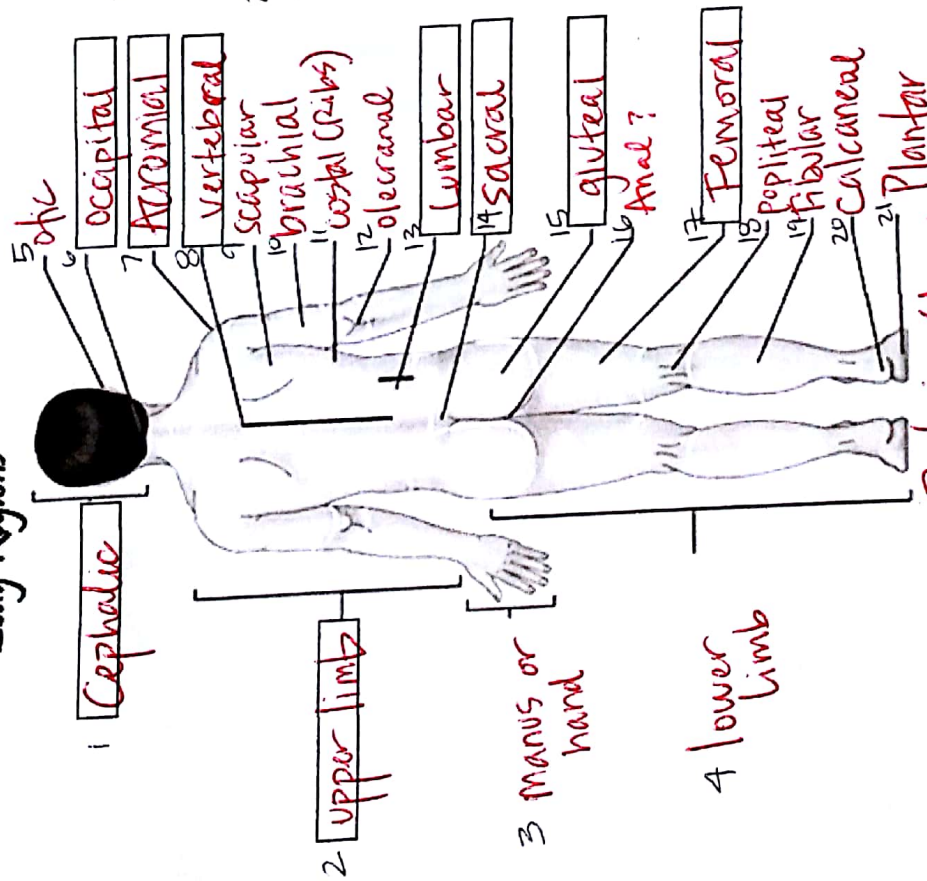 Regions
1 Cephalic
2 upper limb
3 manus or
hand
4 lower
Limb
5 otic
6 occipital
7 Acromial
8 vertebral
9 scapular
10 brachial
11 costal (Ribs)
12 olecranal
13 Lumbar
14 Sacral
15 gluteal
16 Anal ?
17 Femoral
18 popliteal
19 fibular
20 Calcaneal
21 Plantar